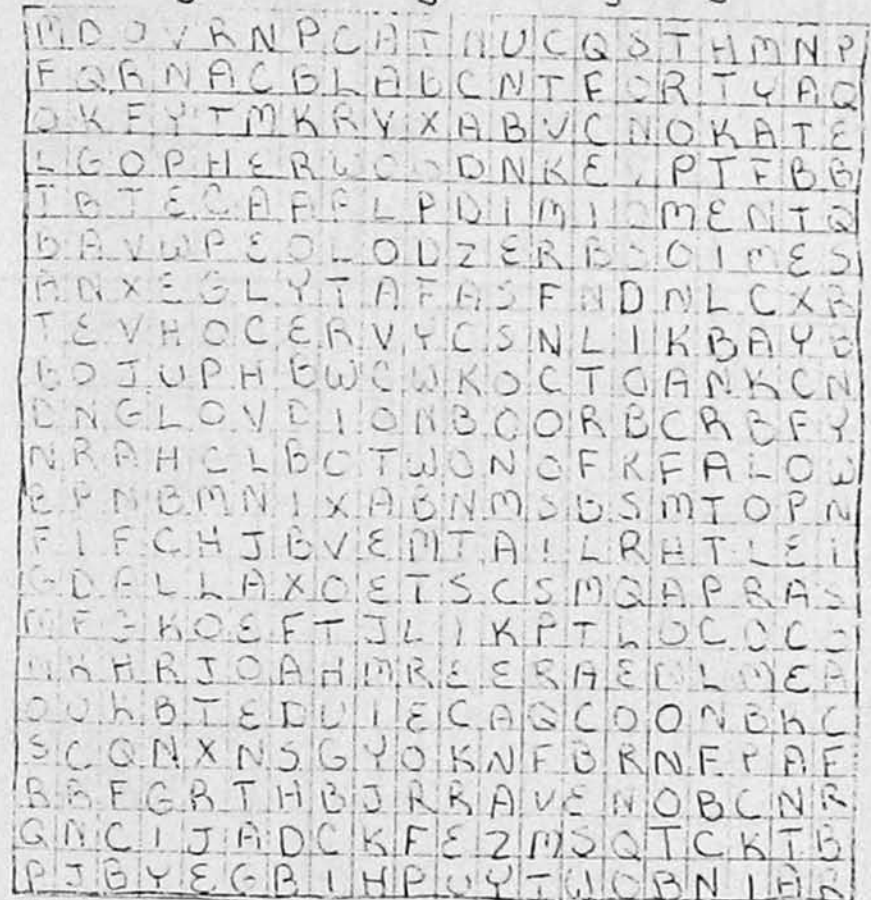 M D O V R N P C A T N U C Q S T H M N P
F Q R N A C B L A L C N T F O R T Y A Q
O K F Y T M K R V X A B V C N O K A T E
L G O P H E R W O O D N K E V P T F B B
I B T E C A A F L P D I M I O M E N T Q
B A V W P E O L O D Z E R B O O I M E S
A N X E G L Y T A F A S F N D N L C X R
T E V H O C E R V Y C S N L I K B A Y O
B O J U P H B W C W K O C T O A N K C N
D N G L O V D I O N B O O R B C R B F Y
N R A H C L B C T W O N O F K F A L O W
E P N B M N I X A B N M S B S M T O P N
F I F C H J B V E M T A I L R H T L E I
G D A L L A X O E T S C S M Q A P R A S
M F G K O E F T J L I K P T L O C O C O
N K H R J O A H M R E E R A E D L M E A
O U K B T E D U I E C A Q C D O N B K C
S C Q N X N S G Y O K N F B R N F P A F
B B F G R T H B J R R A V E N O B C N R
Q N C I J A D C K F E Z M S Q T C K T B
P J B Y E G B I H P U Y T W O B N I A R